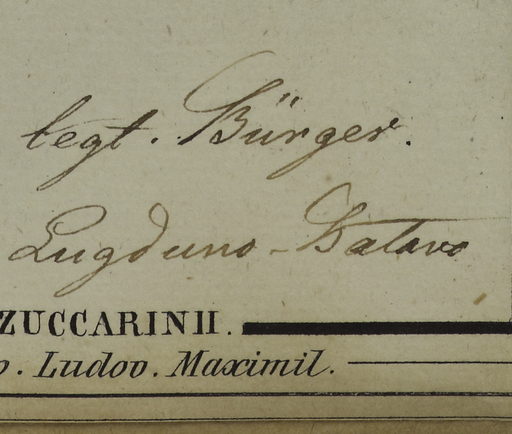 legt. Bürger.
Lugduno-Batavo
ZUCCARINII.
Ludov. Maximil.